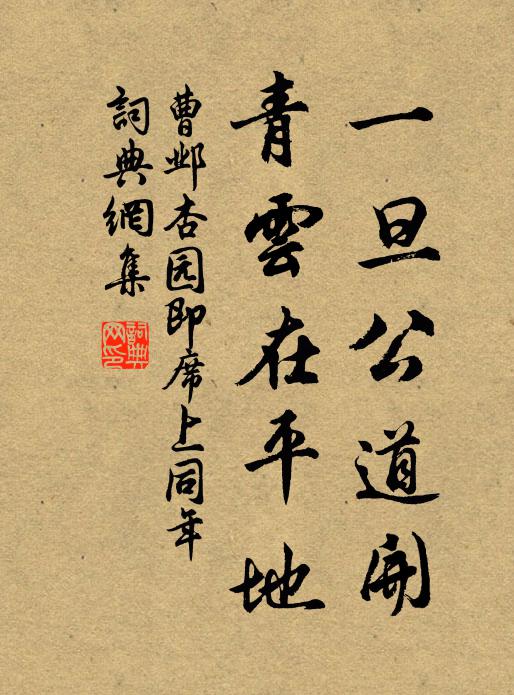 一旦公道開
青雲在平地
曹邺杏园即席上同年
詞典網集
詞典網印